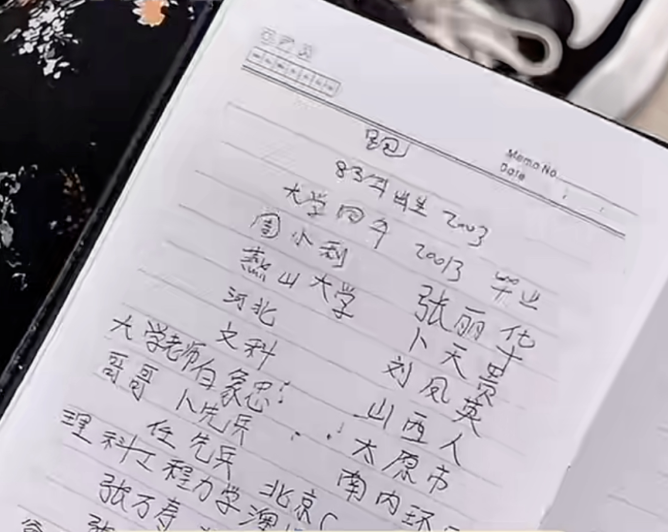 Memo No.
Date
跑
83年出生 2003
大学四年 20013 毕业
周小利 张丽华
燕山大学 卜天贵
河北 刘凤英
文科 山西人
大学老师白象忠: 太原市
哥哥 卜先兵 南内环
任先兵 北京
理科工程力学
张万寿